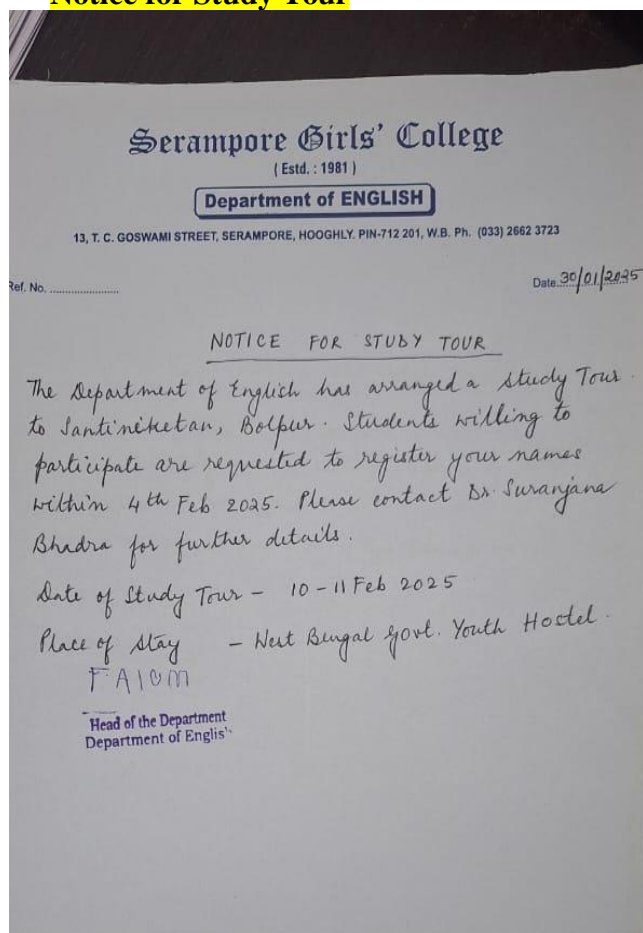 Notice for Study Tour
Serampore Girls' College
( Estd. : 1981 )
Department of ENGLISH
13, T. C. GOSWAMI STREET, SERAMPORE, HOOGHLY. PIN-712 201, W.B. Ph. (033) 2662 3723
Ref. No. ......................
Date 30/01/2025
NOTICE FOR STUDY TOUR
The Department of English has arranged a Study Tour
to Santiniketan, Bolpur. Students willing to
participate are requested to register your names
within 4th Feb 2025. Please contact Dr. Suranjana
Bhadra for further details.
Date of Study Tour – 10-11 Feb 2025
Place of Stay – West Bengal Govt. Youth Hostel.
Head of the Department
Department of Englis